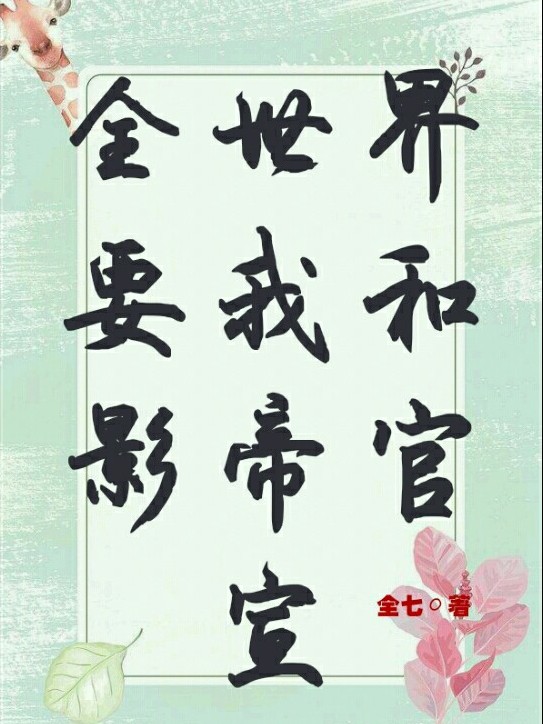 全世界
要我和
影帝官
宣
全七。著